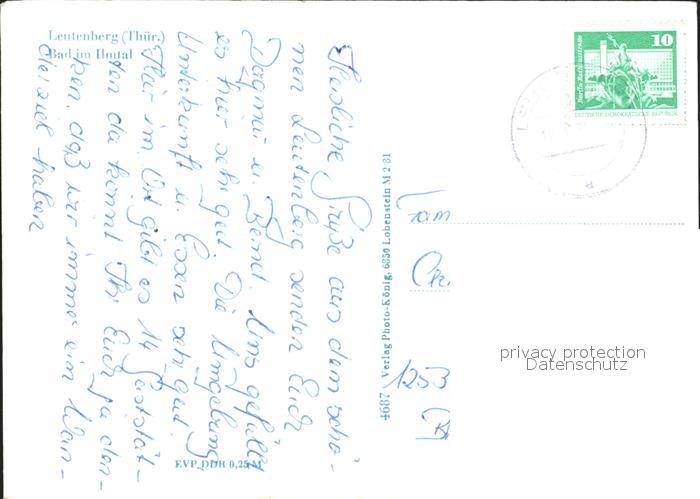 Leutenberg (Thür.)
Bad im Ilmtal
Herzliche Grüße aus dem schö-
nen Leutenberg senden Euch
Dagmar u. Bernd. Uns gefällt
es hier sehr gut. Die Umgebung
Unterkunft u. Essen sehr gut.
Hier im Ort gibt es 14 Gaststät-
ten da könnt Ihr Euch ja den-
ken, daß wir immer ein Wan-
derziel haben
EVP DDR 0,25 M
4687 Verlag Photo-König, 6850 Lobenstein M 2 81
10
Berlin-Rathausstrasse
DEUTSCHE DEMOKRATISCHE REPUBLIK
Fam
1253
privacy protection
Datenschutz